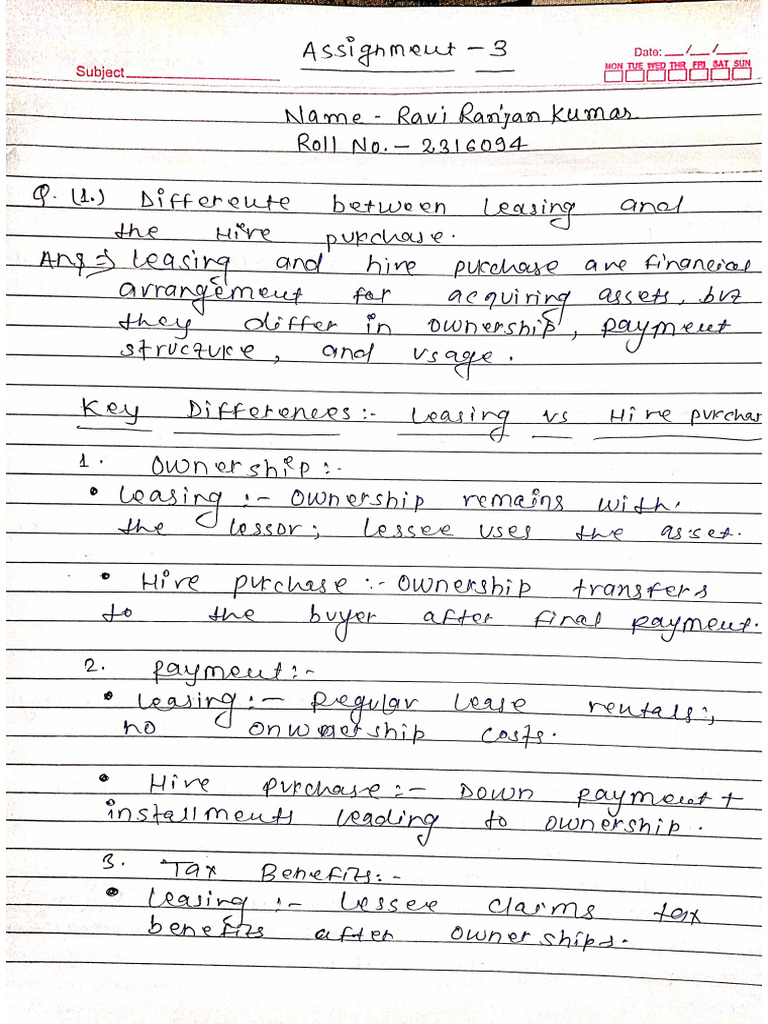 Assignment - 3
Date: __/__/__
Subject
MON TUE WED THR FRI SAT SUN
Name - Ravi Ranjan Kumar
Roll No. - 2316094
Q. (1.) Differeute between leasing and
the Hire purchase.
Ans ⇒ Leasing and hire purchase are financial
arrangement for acquiring assets, but
they differ in ownership, payment
structure, and usage.
Key Differences :- Leasing vs Hire purchas
1. Ownership :-
• Leasing :- Ownership remains with.
the lessor; Lessee uses the asset.
• Hire purchase :- Ownership transfers
to the buyer after final payment.
2. Payment :-
• Leasing :- Regular lease rentals;
no onwnership costs.
• Hire purchase :- Down payment +
installments leading to ownership.
3. Tax Benefits :-
• Leasing :- Lessee claims tax
benefits after ownerships.